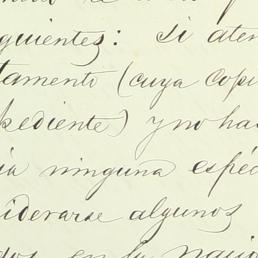 guientes: Si aten
tamento (cuya copi
pediente) y no ha
ia ninguna espéc
iderarse algunos
en la